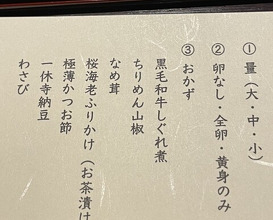 ①量（大・中・小）
②卵なし・全卵・黄身のみ
③おかず
黒毛和牛しぐれ煮
ちりめん山椒
なめ茸
桜海老ふりかけ（お茶漬け
極薄かつお節
一休寺納豆
わさび